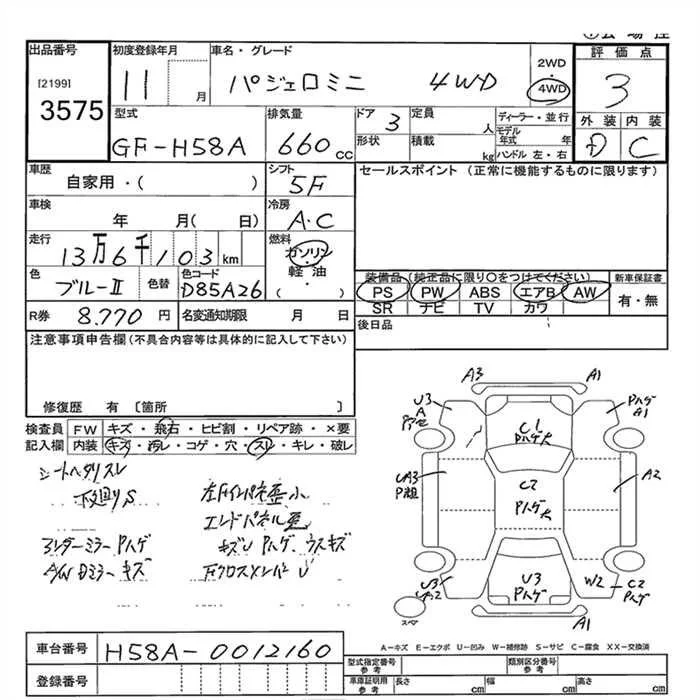 出品番号
[2199]
3575
初度登録年月
11 月
車名・グレード
パジェロミニ 4WD
2WD
・
4WD
評価点
3
外装 内装
D C
型式
GF-H58A
排気量
660 cc
ドア 3
形状
定員 人
積載 kg
ディーラー・並行
モデル年式 年
ハンドル 左・右
車歴
自家用・( )
シフト
5F
セールスポイント (正常に機能するものに限ります)
車検
年 月( 日)
冷房
A・C
走行
13万6千103km
燃料
ガソリン
・
軽油
( )
色
ブルーII
色替
色コード
D85A26
装備品 (純正品に限り○をつけてください)
PS PW ABS エアB AW
SR ナビ TV カワ
新車保証書
有・無
R券 8.770 円
名変通知期限 月 日
後日品
注意事項申告欄(不具合内容等は具体的に記入して下さい)
修復歴 有 〔箇所 〕
検査員記入欄
FW キズ・飛石・ヒビ割・リペア跡・×要
内装 キズ・汚レ・コゲ・穴・スレ・キレ・破レ
シートヘタリスレ
下廻りS
左Fインパネ歪小
エンドパネル歪
キズU Pハゲ、ウスキズ
アンダーミラーPハゲ
A/W Dミラーキズ
FクロスメンバーU
A3
A1
U3
A
Pハゲ
A1
C1
Pハゲ大
UA3
P粗
A2
C2
Pハゲ大
U3
U3
Pハゲ
W2
C2
Pハゲ
スペア
A1
A-キズ E-エクボ U-凹み W-補修跡 S-サビ C-腐食 XX-交換済
車台番号
H58A-0012160
登録番号
型式指定番号
参考
類別区分番号
参考
車庫証明用
参考
長さ cm
幅 cm
高さ cm